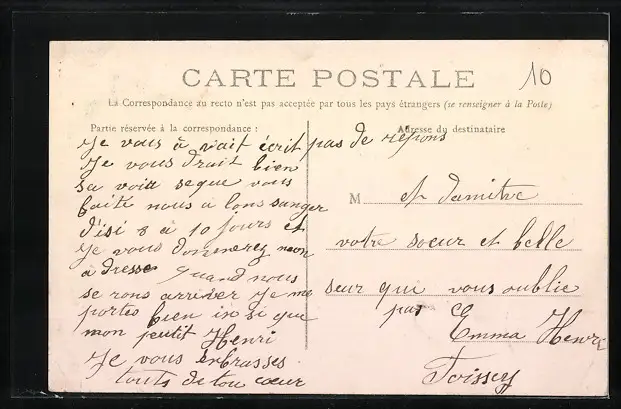 CARTE POSTALE
10
La Correspondance au recto n'est pas acceptée par tous les pays étrangers (se renseigner à la Poste)
Partie réservée à la correspondance :
Adresse du destinataire
Je vous à vait écrit pas de répons
Je vous drait bien
sa voir seque vous
faite nous à lons sanger
d'isi 8 à 10 jours et
Je vous donnerez mon
a dresse quand nous
se rons arriver Je me
portes bien in si que
mon peutit Henri
Je vous enbrasses
touts de tou cœur
M et
votre soeur et belle
seur qui vous oublie
pas
Emma Henri
Toissey